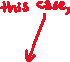 this case,